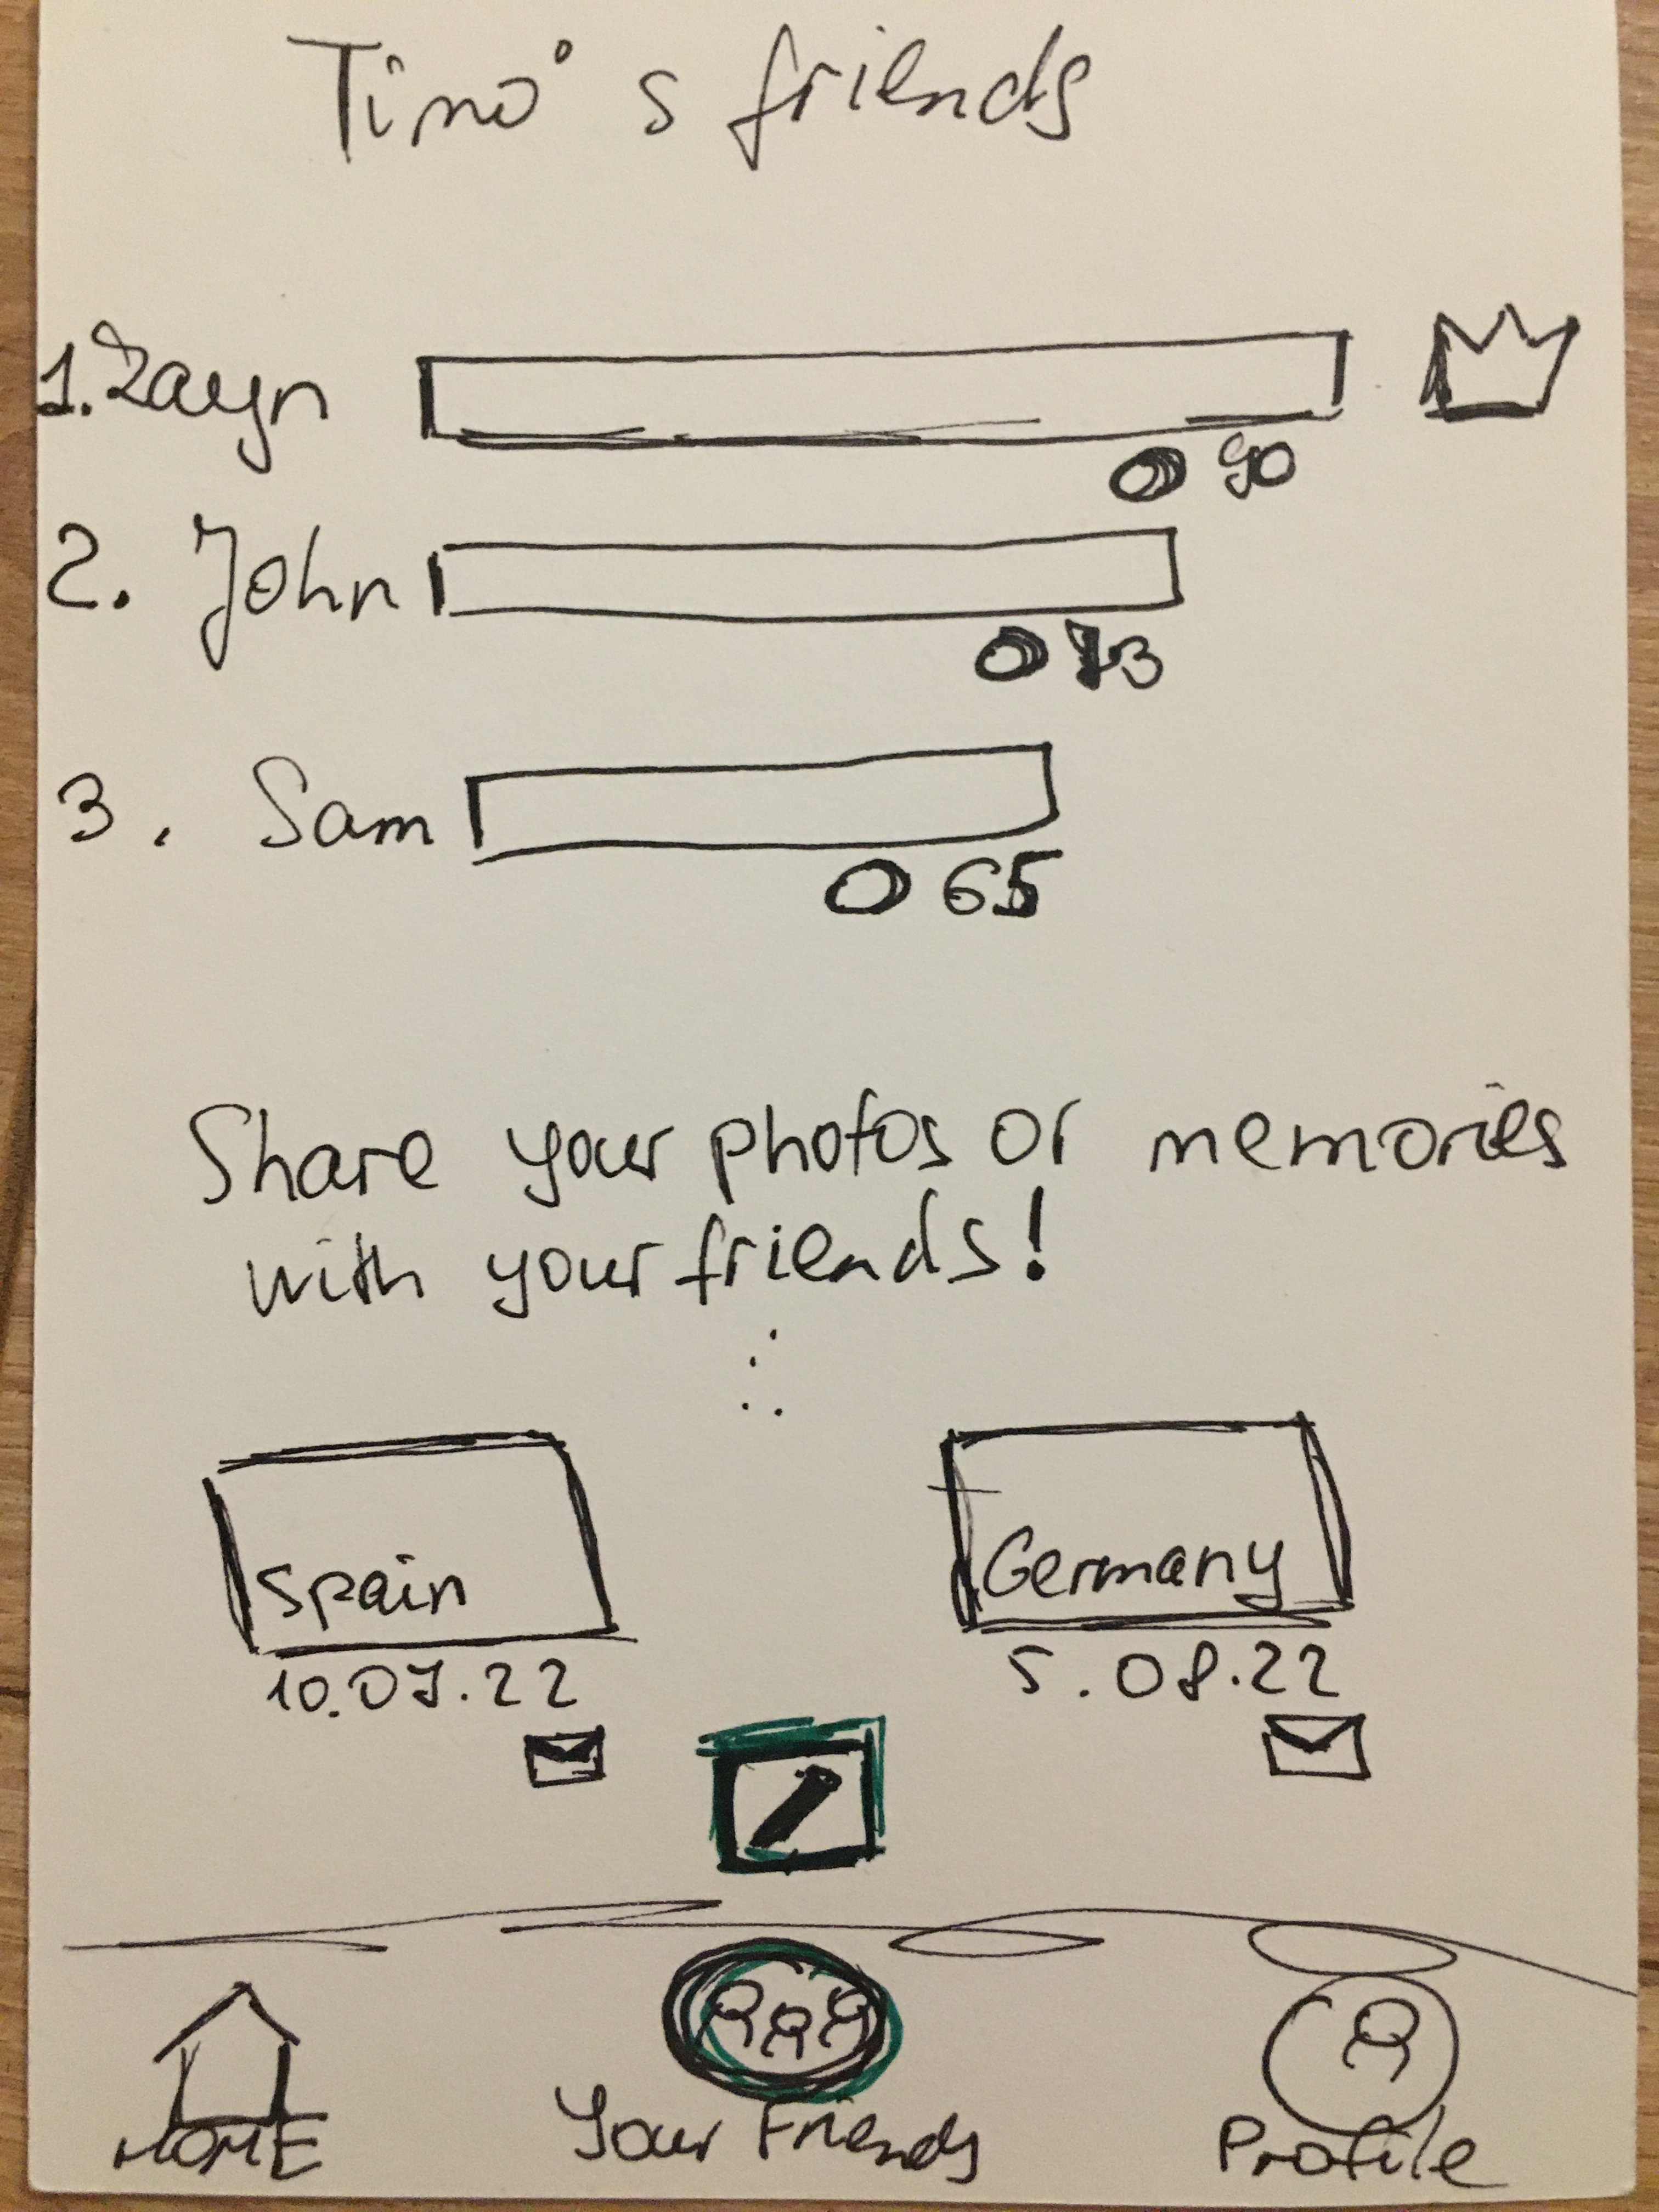 Timo's friends
1. Zayn
90
2. John
73
3. Sam
65
Share your photos or memories
with your friends!
Spain
Germany
10.07.22
5.08.22
HOME
Your Friends
Profile